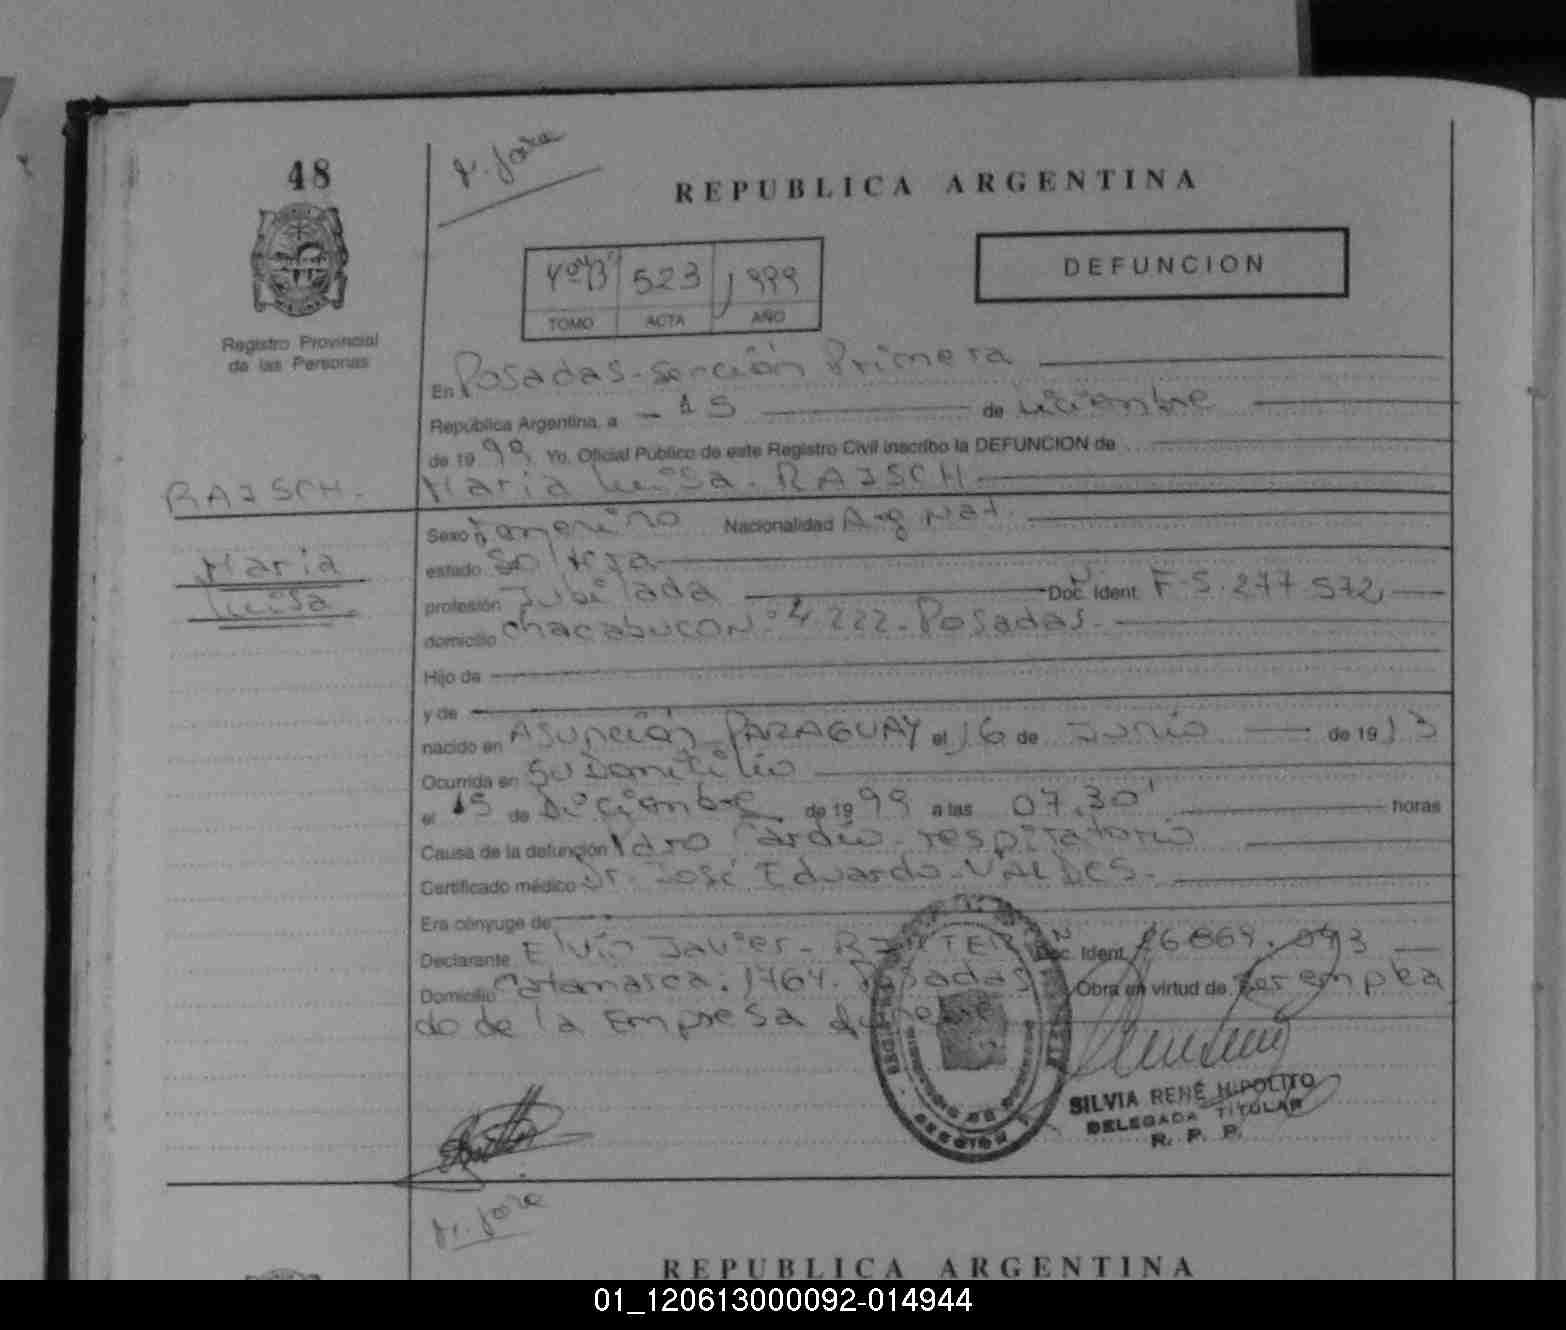 48
REPUBLICA ARGENTINA
DEFUNCION
523 1999
TOMO ACTA AÑO
Registro Provincial
de las Personas
En Posadas - sección Primera
República Argentina, a - 15 de Diciembre
de 1999 Yo, Oficial Público de este Registro Civil inscribo la DEFUNCION de
RAJSCH. Maria Luisa. RAJSCH
Sexo femenino Nacionalidad Arg Nat.
Maria
estado soltera
Luisa
profesión Jubilada Doc. Ident. F. 5.277.572
domicilio Chacabuco Nº 4.222. Posadas.
Hijo de
y de
nacido en Asunción PARAGUAY el 16 de Junio de 1913
Ocurrida en su Domicilio
el 15 de Diciembre de 1999 a las 07,30' horas
Causa de la defunción Paro Cardio-respiratorio
Certificado médico Dr. José Eduardo VALDES.
Era cónyuge de
Declarante Elvio Javier Doc. Ident.
Domicilio Catamarca. 1764. Posadas Obra en virtud de ser emplea
do de la Empresa funebre
SILVIA RENÉ HIPOLITO
DELEGADA TITULAR
R. P. P.
REPUBLICA ARGENTINA
01_120613000092-014944